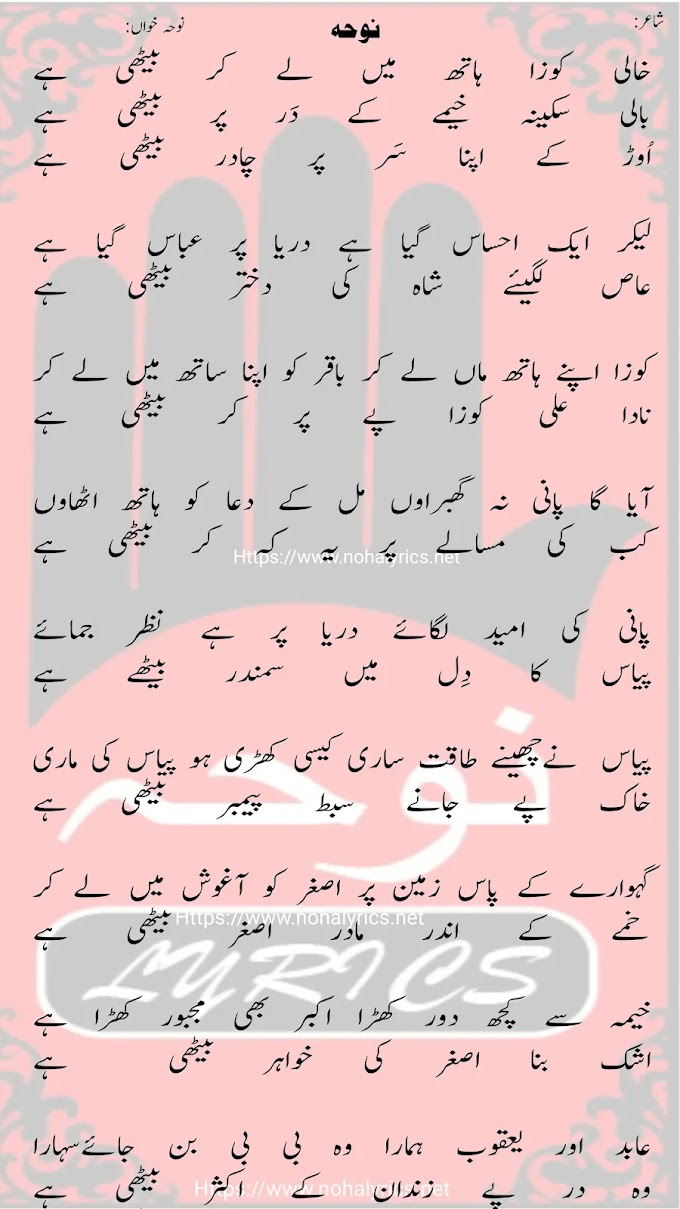 شاعر:
نوحہ
نوحہ خواں:
خالی کوزا ہاتھ میں لے کر بیٹھی ہے
بالی سکینہ خیمے کے دَر پر بیٹھی ہے
اُوڑ کے اپنا سَر پر چادر بیٹھی ہے
لیکر ایک احساس گیا ہے دریا پر عباس گیا ہے
عاص لگیئے شاہ کی دختر بیٹھی ہے
کوزا اپنے ہاتھ ماں لے کر باقر کو اپنا ساتھ میں لے کر
نادا علی کوزا پے پر کر بیٹھی ہے
آیا گا پانی نہ گھبراوں مل کے دعا کو ہاتھ اٹھاوں
کب کی مسالے پر یہ کہ کر بیٹھی ہے
Https://www.nohalyrics.net
پانی کی امید لگائے دریا پر ہے نظر جمائے
پیاس کا دِل میں سمندر بیٹھے ہے
پیاس نے چھینے طاقت ساری کیسی کھڑی ہو پیاس کی ماری
نوحہ
خاک پے جانے سبط پیمبر بیٹھی ہے
گہوارے کے پاس زمین پر اصغر کو آغوش میں لے کر
Https://www.nohalyrics.net
خمے کے اندر مادر اصغر بیٹھی ہے
LYRICS
خیمہ سے کچھ دور کھڑا اکبر بھی مجبور کھڑا ہے
اشک بنا اصغر کی خواہر بیٹھی ہے
عابد اور یعقوب ہمارا وہ بی بی بن جائے سہارا
وہ در پے زندان کے اکثر بیٹھی ہے
Https://www.nohalyrics.net